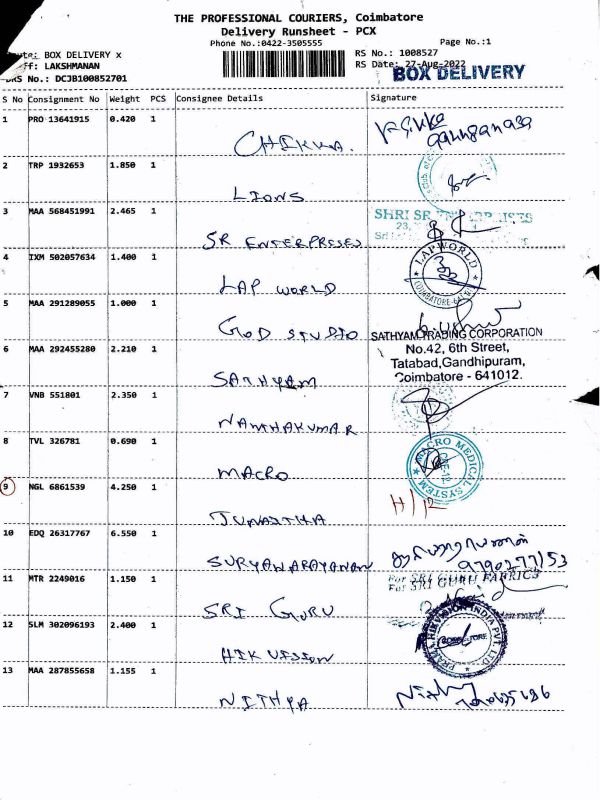 THE PROFESSIONAL COURIERS, Coimbatore
Delivery Runsheet - PCX
Phone No.:0422-3505555 Page No.:1
BOX DELIVERY x RS No.: 1008527
LAKSHMANAN RS Date: 27-Aug-2022
DRS No.: DCJB100852701 BOX DELIVERY
S No Consignment No Weight PCS Consignee Details Signature
1 PRO 13641915 0.420 1
CHIKKA.
2 TRP 1932653 1.850 1
LIONS
3 MAA 568451991 2.465 1 SHRI SR ENTERPRISES
23,
SR ENTERPRESES
4 IXM 502057634 1.400 1 LAPWORLD
LAP WORLD COIMBATORE-641
5 MAA 291289055 1.000 1
GOD STUDIO SATHYAM TRADING CORPORATION
6 MAA 292455280 2.210 1 No.42, 6th Street,
Tatabad,Gandhipuram,
SATHYAM Coimbatore - 641012.
7 VNB 551801 2.350 1
NANTHAKUMAR
8 TVL 326781 0.690 1 MACRO MEDICAL SYSTEM
CBE-12
MACRO
9 NGL 6861539 4.250 1 H/12
10 EDQ 26317767 6.550 1
SURYANARAYANAN 9790277153
11 MTR 2249016 1.150 1 For SRI GURU FABRICS
For SRI GURU
SRI GURU
12 SLM 302096193 2.400 1 PRAMA HIKVISION INDIA PVT. LTD.
HIK VISSION
13 MAA 287855658 1.155 1
NITHYA